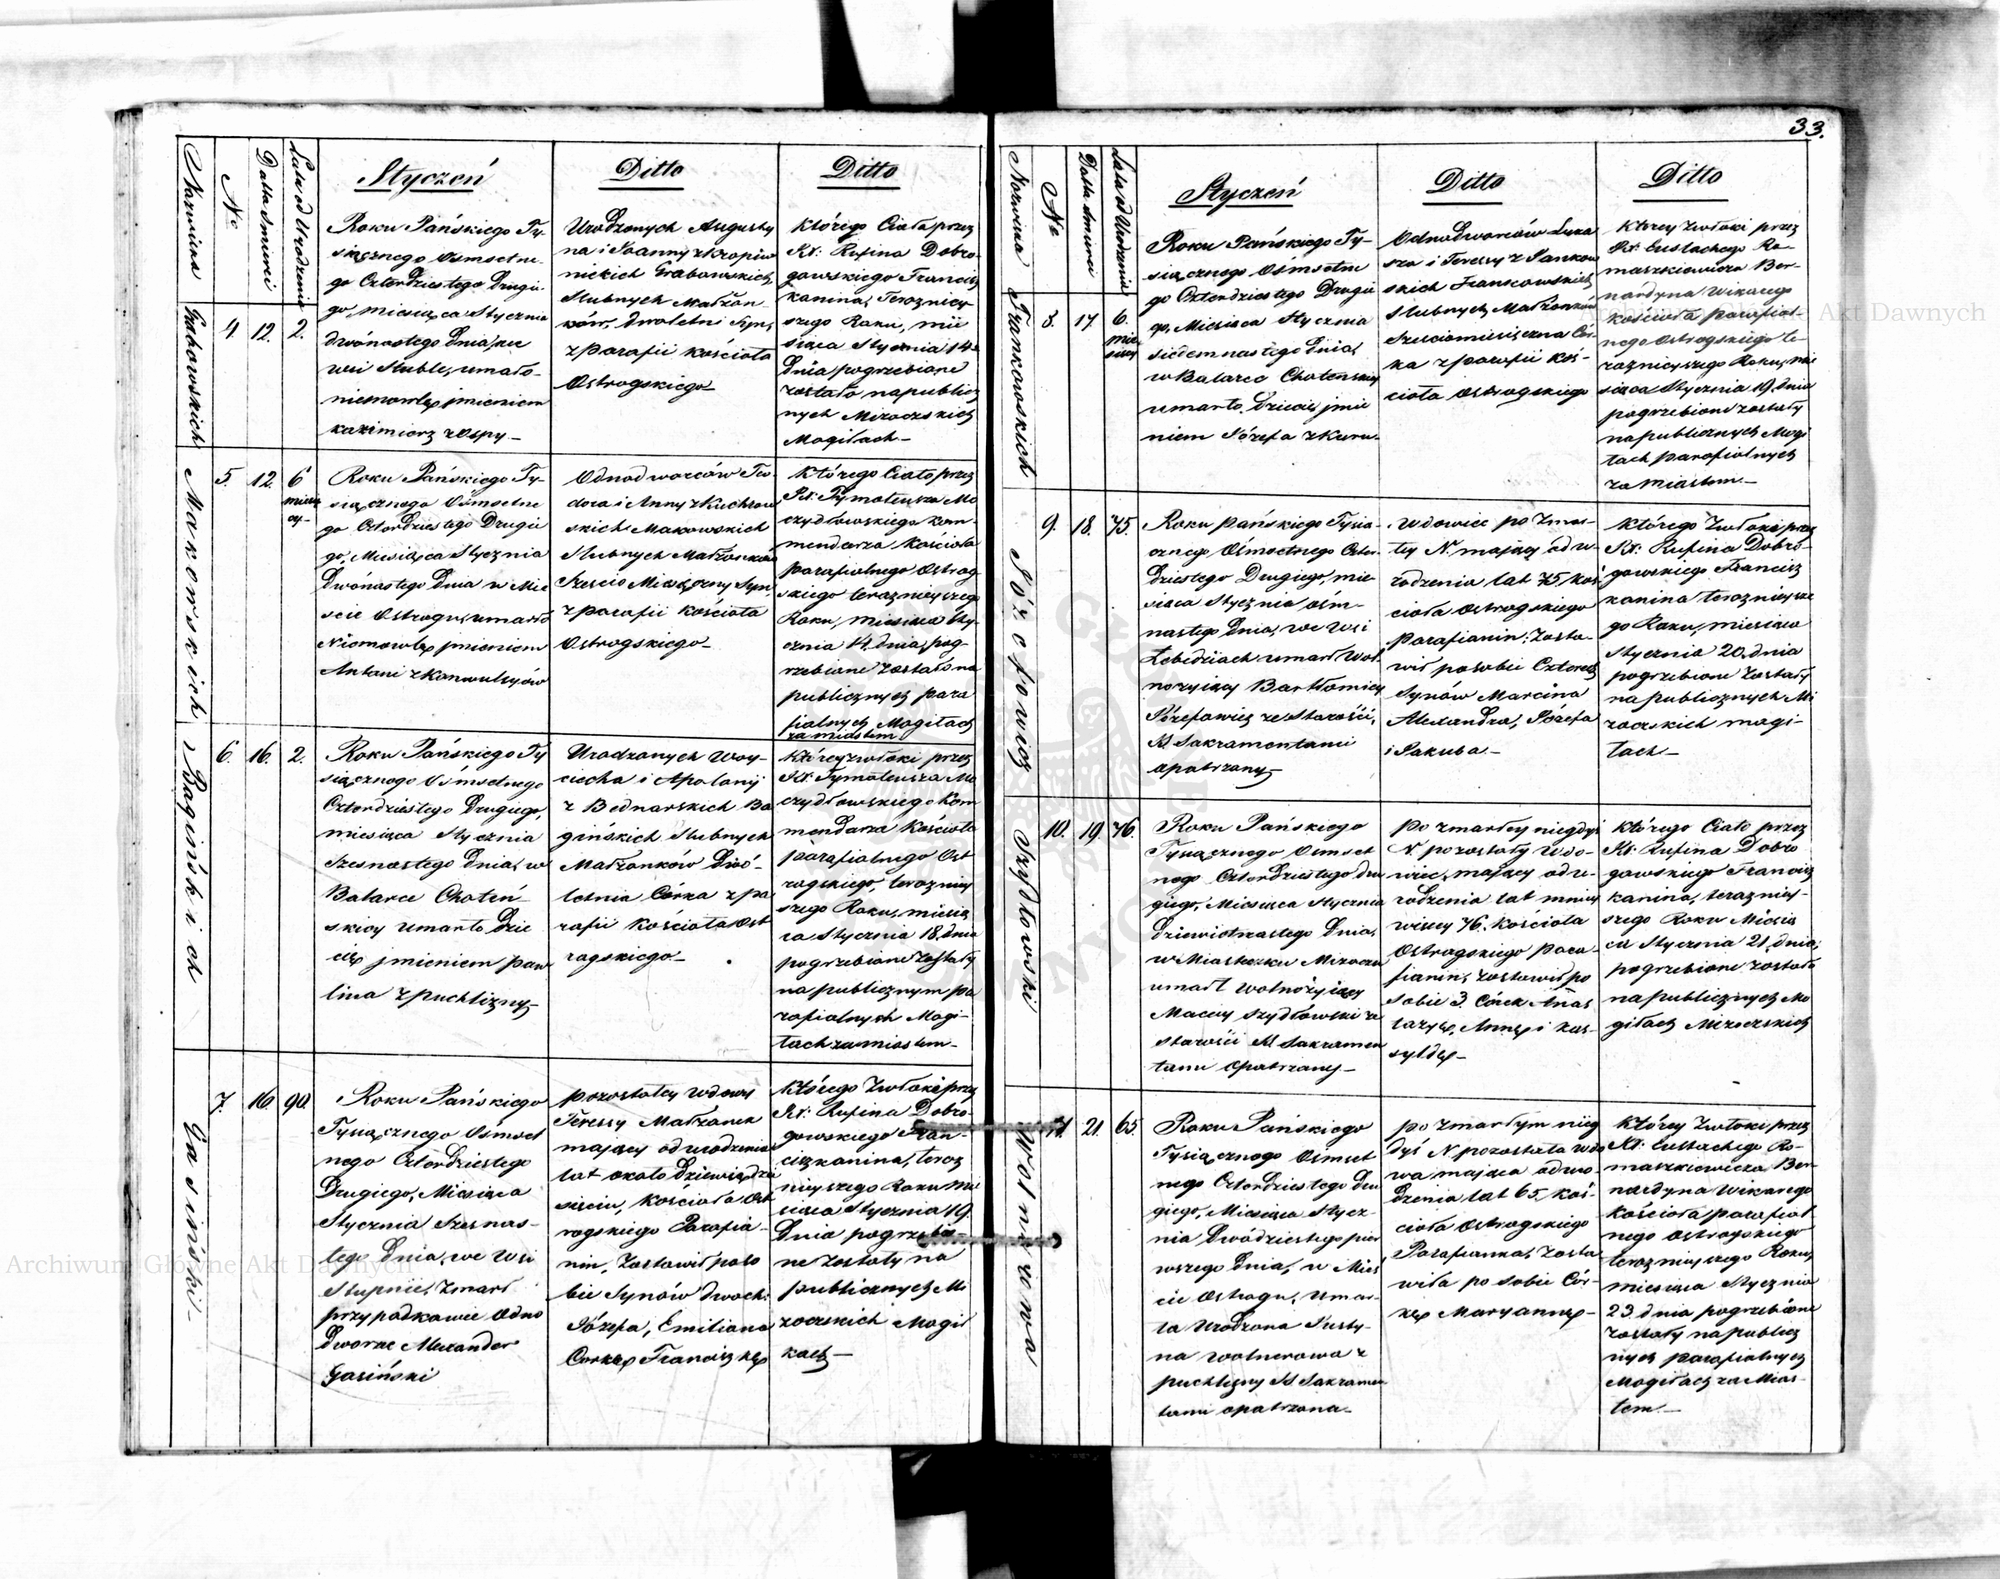 33.
Nazwiska
No
Datta Śmierci
Lata od Urodzenia
Styczeń
Ditto
Ditto
Grabowskich
4. 12. 2.
Roku Pańskiego Ty-
siącznego Osmsetne
go Czterdziestego Drugie
go, miesiąca Stycznia
dwónastego Dnia, we
wsi Stuble, umarło
niemowlę jmieniem
Kazimierz z Ospy –
Urodzonych Augusty
na i Joanny z Kropiw
nickich Grabowskich,
Slubnych Małżon
ków, dwoletni Syn,
z parafii kościoła
Ostrogskiego –
Którego Ciało przez
Xs: Rufina Dobro-
gowskiego Francisz
kanina, Terazniey
szego Roku, mie
siąca Stycznia 14–
Dnia pogrzebione
zostało na publicz
nych Mizoczskich
Mogiłach –
Makowskich
5. 12. 6
miesię
cy –
Roku Pańskiego Ty-
siącznego Osmsetne
go Czterdziestego Drugie
go, Miesiąca Stycznia
Dwónastego Dnia w Mie
scie Ostrogu, umarło
Niemowlę jmieniem
Antoni z Konwulsyów
Odnodworców Teo
dora i Anny z Kuchrow
skich Makowskich
Slubnych Małżonków
Szescio Miesięczny Syn,
z parafii Kościoła
Ostrogskiego –
Którego Ciało przez
Xs: Tymoteusza Mo
czydłowskiego Kom-
mendarza Kościoła
parafialnego Ostrog
skiego terazniejszego
Roku, miesiąca Sty-
cznia 14. dnia, pog-
rzebione zostało na
publicznych para
fialnych Mogiłach
za miastem
Bagińskich
6. 16. 2.
Roku Pańskiego Ty
siącznego Osmsetnego
Czterdziestego Drugiego,
miesiąca Stycznia
Szesnastego Dnia, w
Balarce Choteń
skiey umarło Dzie
cię jmieniem Paw
lina z puchlizny –
Urodzonych Woy-
ciecha i Apolonij
z Bednarskich Ba
gińskich Slubnych
Małżonków Dwó-
letnia Córka z pa
rafii Kościoła Ost
rogskiego –
Którey zwłoki przez
Xs: Tymoteusza Mo
czydłowskiego Kom
mendarza Kościoła
parafialnego Ost
rogskiego, terazniey
szego Roku, miesią
ca Stycznia 18. dnia
pogrzebione zostały
na publicznym pa
rafialnych Mogi-
łach za miastem –
Gasiński –
7. 16. 90.
Roku Pańskiego
Tysiącznego Osmset
nego Czterdziestego
Drugiego, Miesiąca
Stycznia Szesnas-
tego Dnia, we Wsi
Stupnie, Zmarł
przypadkowie Odno
Dworzec Alexander
Gasiński
pozostałey wdowy
Teressy Małżonek
mający od urodzenia
lat około Dziewiędzie
sięciu, Kościoła Ost
rogskiego Parafia-
nin, Zostawił poso
bie Synów dwóch:
Józefa, Emiliana
Corkę Franciszkę
Którego Zwłoki przez
Xs: Rufina Dobro-
gowskiego Fran-
ciszkanina, teraz
nieyszego Roku mie
siąca Stycznia 19.
Dnia pogrzebio
ne zostały na
publicznych Mi
zoczskich Mogił
kach –
Nazwiska
No
Datta Śmierci
Lata od Urodzenia
Styczeń
Ditto
Ditto
Frankowskich
8. 17. 6.
mie
sięcy
Roku Pańskiego Ty-
siącznego Osmsetne
go Czterdziestego Drugie
go, Miesiąca Stycznia
siedemnastego Dnia,
w Balarce Chotenskiey
umarło Dziecię jmie
niem Józefa z Kuru-
Odnodworców Łuka
sza i Teressy z Jankow
skich Frankowskich
Slubnych Małżonków
Szesciomiesięczna Cór-
ka z parafii Koś-
cioła Ostrogskiego
Którey Zwłoki przez
Xs: Eustachego Ro-
maszkiewicza Ber-
nardyna Wikarego
Kościoła parafial-
nego Ostrogskiego te-
raznieyszego Roku, mie
siąca Stycznia 19. dnia
pogrzebione zostały
na publicznych Mogi
łach parafialnych
za miastem –
Józefowicz
9. 18. 75.
Roku Pańskiego Tysią-
cznego Osmsetnego Czter-
dziestego Drugiego, mie
siąca Stycznia ośm-
nastego Dnia, we Wsi
Łebedziach umarł Wol
nożyjący Bartłomiey
Józefowicz ze Starości,
SS Sakramentami
opatrzony –
Wdowiec po Zmar-
łey N. mający od u-
rodzenia lat 75, koś
cioła Ostrogskiego
Parafianin; zosta-
wił po sobie Czterech
Synów Marcina
Alexandra, Józefa
i Jakuba –
Którego Zwłoki przez
Xs: Rufina Dobro-
gowskiego Francisz
kanina terazniejsze
go Roku, miesiąca
Stycznia 20. dnia
pogrzebione zostały
na publicznych Mi
zoczskich mogi-
łach –
Szydłowski
10. 19. 76.
Roku Pańskiego
Tysiącznego Osmset
nego Czterdziestego dru
giego, Miesiąca Stycznia
dziewiętnastego Dnia,
w Miasteczku Mizoczu
umarł Wolnożyjący
Maciey Szydłowski ze
starości SS Sakramen
tami Opatrzony –
po zmarłey niegdyś
N. pozostały wdo-
wiec, mający od u-
rodzenia lat mniey
więcey 76. Kościoła
Ostrogskiego para-
fianin, zostawił po
sobie 3. Córek Anas
tazyę, Annę i Kas-
syldę –
Którego Ciało przez
Xs: Rufina Dobro
gowskiego Francisz
kanina, terazniey-
szego Roku Miesią
ca Stycznia 21. dnia,
pogrzebione zostało
na publicznych Mo
giłach Mizoczskich
Wolnerowa
11. 21. 65.
Roku Pańskiego
Tysiącznego Osmset
nego Czterdziestego Dru
giego, Miesiąca Stycz-
nia Dwódziestego pier
wszego Dnia, w Mieś
cie Ostrogu, Umar-
ła Urodzona Justy-
na Wolnerowa z
puchlizny SS Sakramen
tami opatrzona –
po zmarłym nieg
dyś N. pozostała wdo
wa mająca od uro-
dzenia lat 65, koś-
cioła Ostrogskiego
Parafianka, zosta
wiła po sobie Cór-
kę Maryannę –
Którey Zwłoki przez
Xs: Eustachego Ro-
maszkiewicza Ber-
nardyna Wikarego
Kościoła parafial
nego Ostrogskiego
terazniejszego Roku,
miesiąca Stycznia
23 dnia pogrzebione
zostały na publicz
nych parafialnych
Mogiłach za Mias-
tem –
Archiwum Główne Akt Dawnych